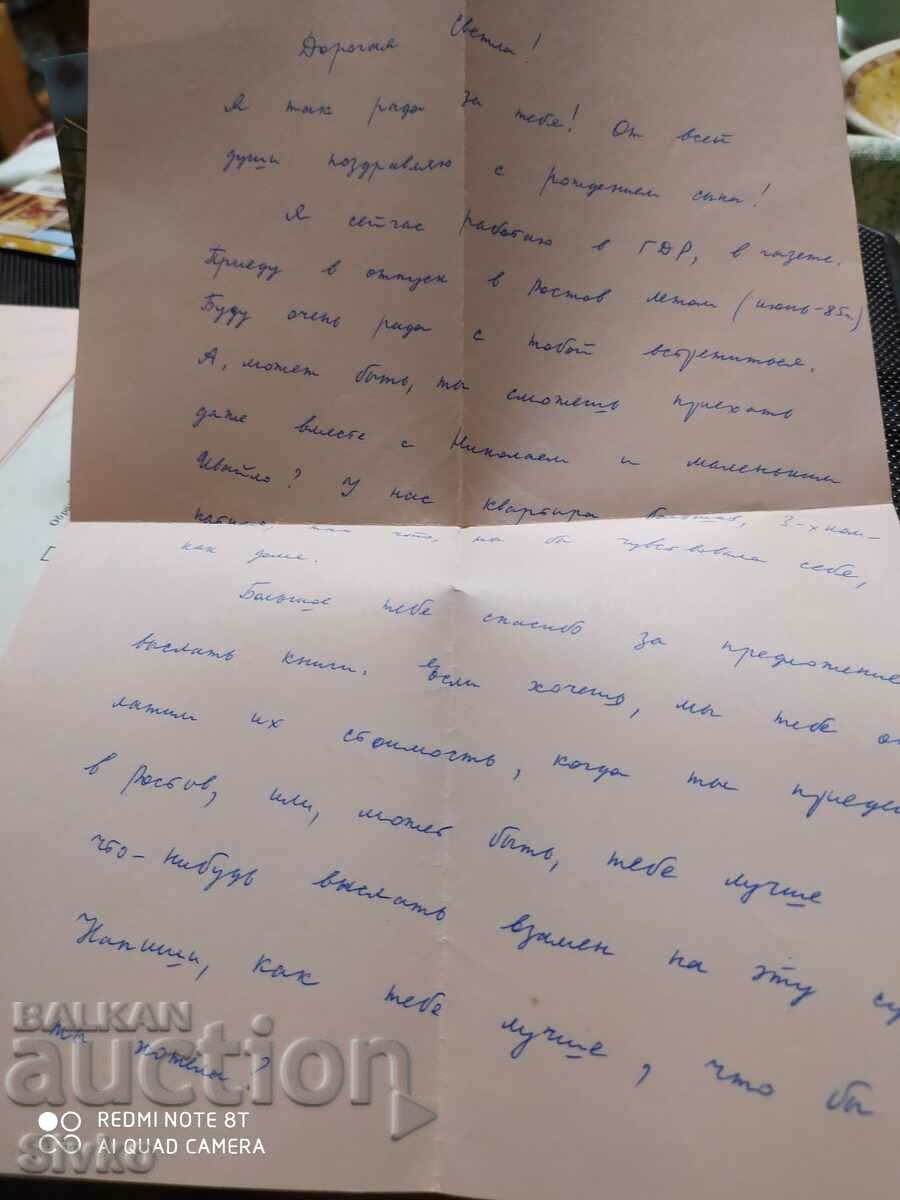 Дорогая Светла!
Я так рада за тебя! От всей
души поздравляю с рождением сына!
Я сейчас работаю в ГДР, в газете.
Приеду в отпуск в Ростов летом (июнь-85г.)
Буду очень рада с тобой встретиться.
А, может быть, ты сможешь приехать
даже вместе с Николаем и маленьким
Ивайло? У нас квартира большая, 3-х ком-
натная, так что, вы бы чувствовали себя,
как дома.
Большое тебе спасибо за предложение
выслать книги. Если хочешь, мы тебе оп
латим их стоимость, когда ты приеде
в Ростов, или, может быть, тебе лучше
что-нибудь выслать взамен на эту су
Напиши, как тебе лучше, что бы
ты хотела?
BALKAN
auction
REDMI NOTE 8T
AI QUAD CAMERA
Sivko